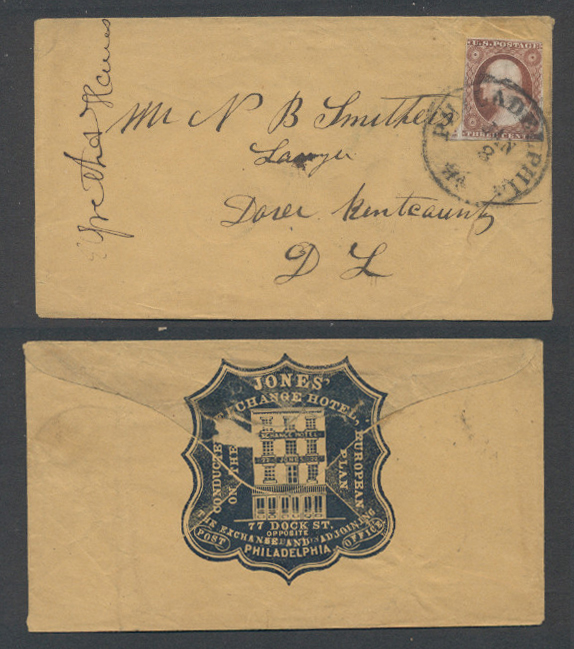 Mr N B Smithers
Lawyer
Dover Kent county
D L
U.S. POSTAGE
THREE CENTS
PHILADELPHIA
JAN
8
Pa
JONES'
EXCHANGE HOTEL,
CONDUCTED
ON THE
EUROPEAN
PLAN
EXCHANGE HOTEL
77 DOCK ST.
OPPOSITE
THE EXCHANGE AND ADJOINING
POST OFFICE
PHILADELPHIA